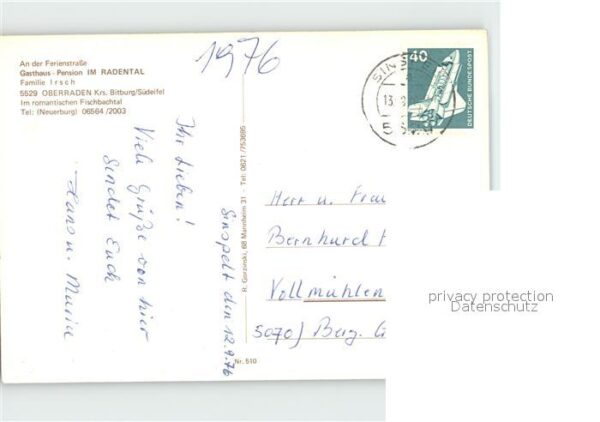 1976
An der Ferienstraße
Gasthaus - Pension IM RADENTAL
Familie Irsch
5529 OBERRADEN Krs. Bitburg/Südeifel
Im romantischen Fischbachtal
Tel: (Neuerburg) 06564 /2003
40
DEUTSCHE BUNDESPOST
SINS
13.
R. Gorzinski, 68 Mannheim 31 - Tel: 0621/753695
Nr. 510
Sinspelt den 12.9.76
Ihr Lieben!
Viele Grüße von hier
sendet Euch
Hans u. Maria
Herr u. Frau
Bernhardt
Vollmühlen
5070) Berg. G
privacy protection
Datenschutz